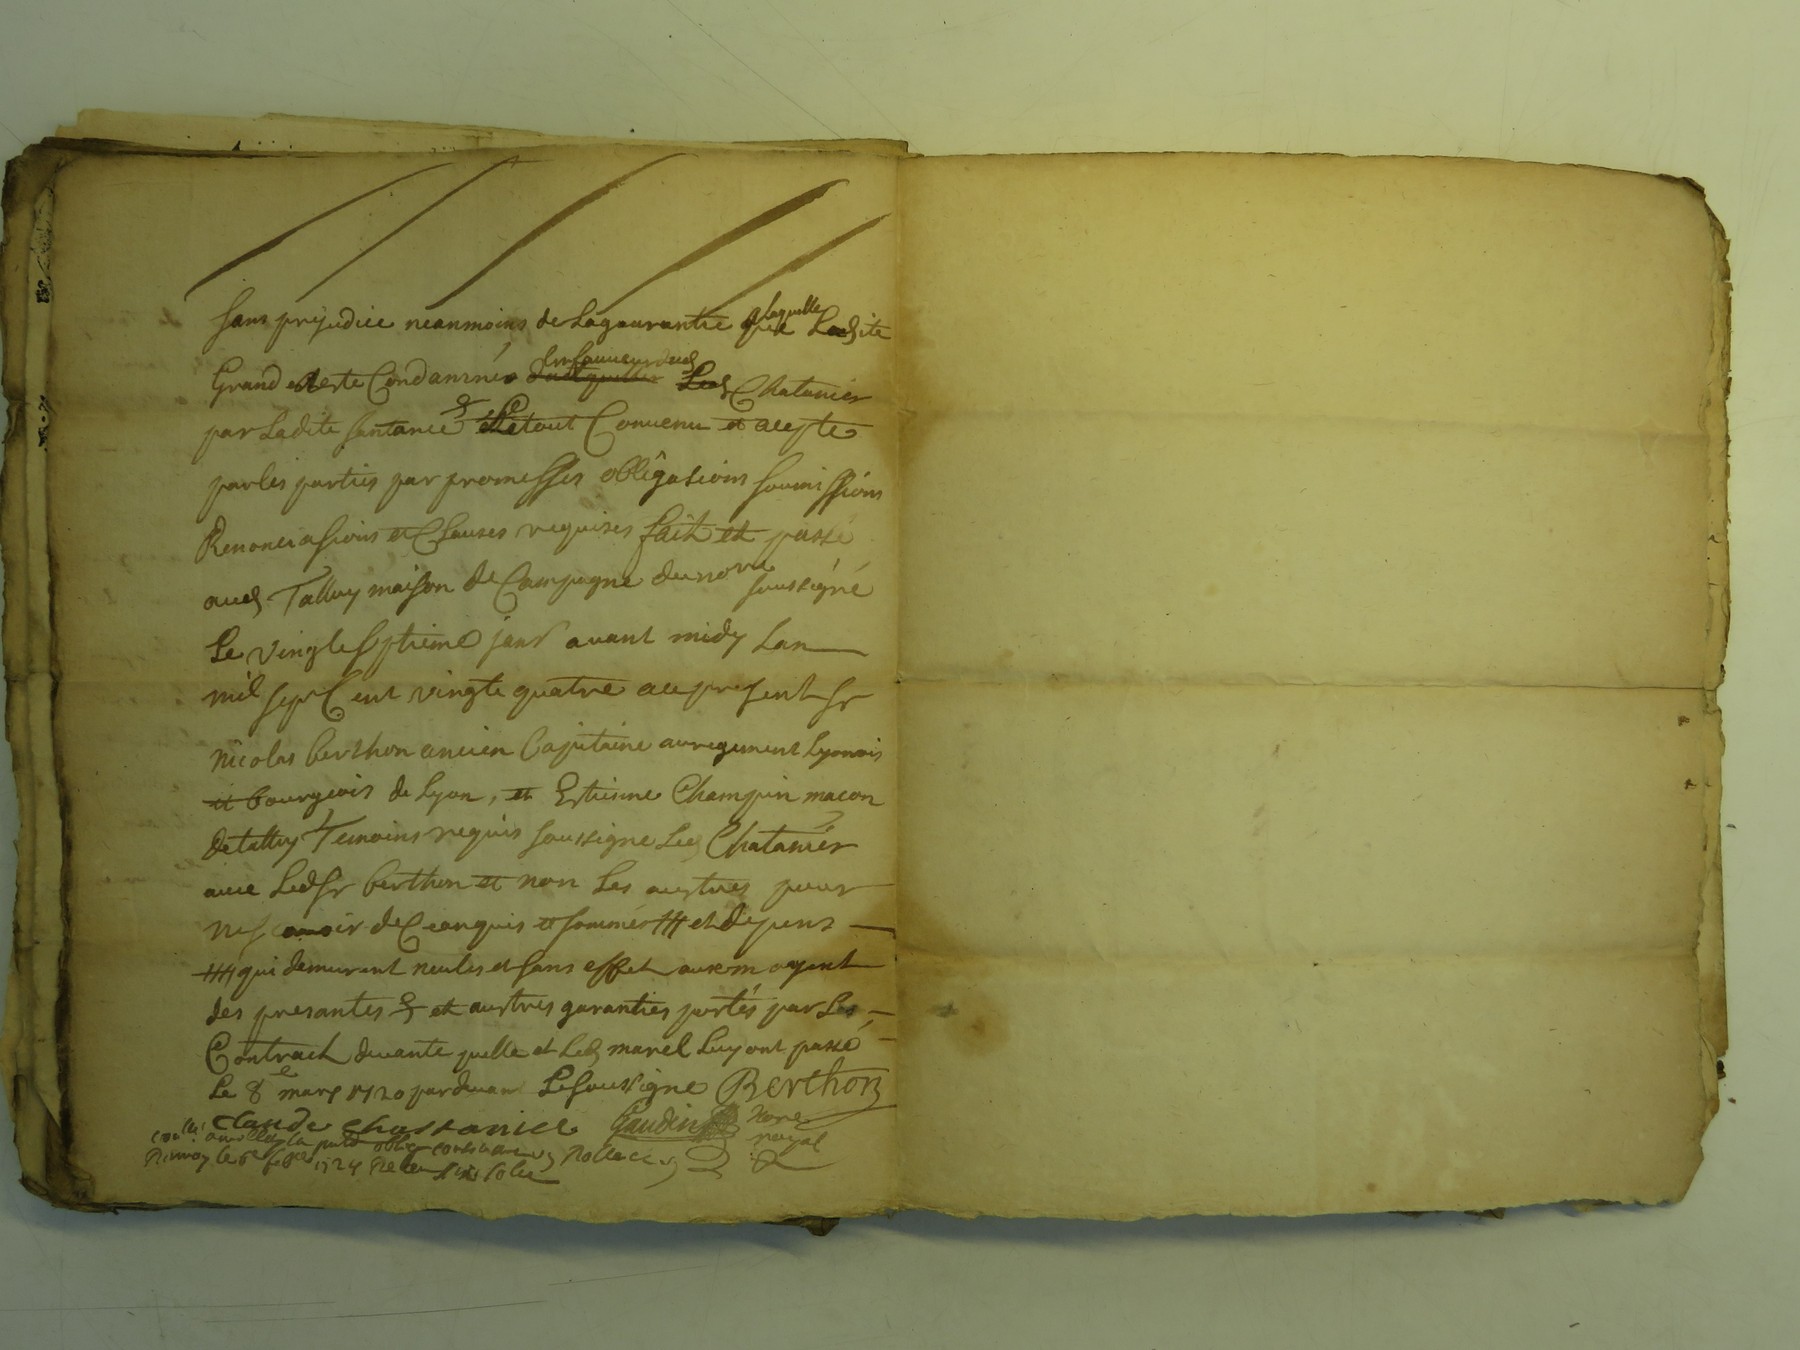 sans prejudice neanmoins de Lagaurantie a laquelle Ladite
Grand est este Condamnée en faueur dud Chatanier
par Ladite santance & Le tout Conuenu et acepte
par les parties par promesses obligasions soumissions
Renonciasions et Clauses requises fait et passé
aud Talluy maison de Campagne du no.re soussigné
Le vingtseptieme jan.r auant midy Lan
mil sept Cent vingte quatre au present Sr
Nicolas berthon ancien Capitaine au regiment Lyonnois
et bourgeois de Lyon, et Estienne Champin macon
de talluy Temoins requis soussigne Led Chatanier
auec Led Sr berthon et non Les austres pour
ne scauoir de Ce enquis et sommés # et depens
# qui demurent neules et sans effet au moyent
des presantes & et austres garanties portés par Les
Contract deuante quelle et Led marel Luy ont passé
Le 8e mars 1720 par deuant Le soussigne Berthon
Claude Chastanier Gaudin No.re
royal